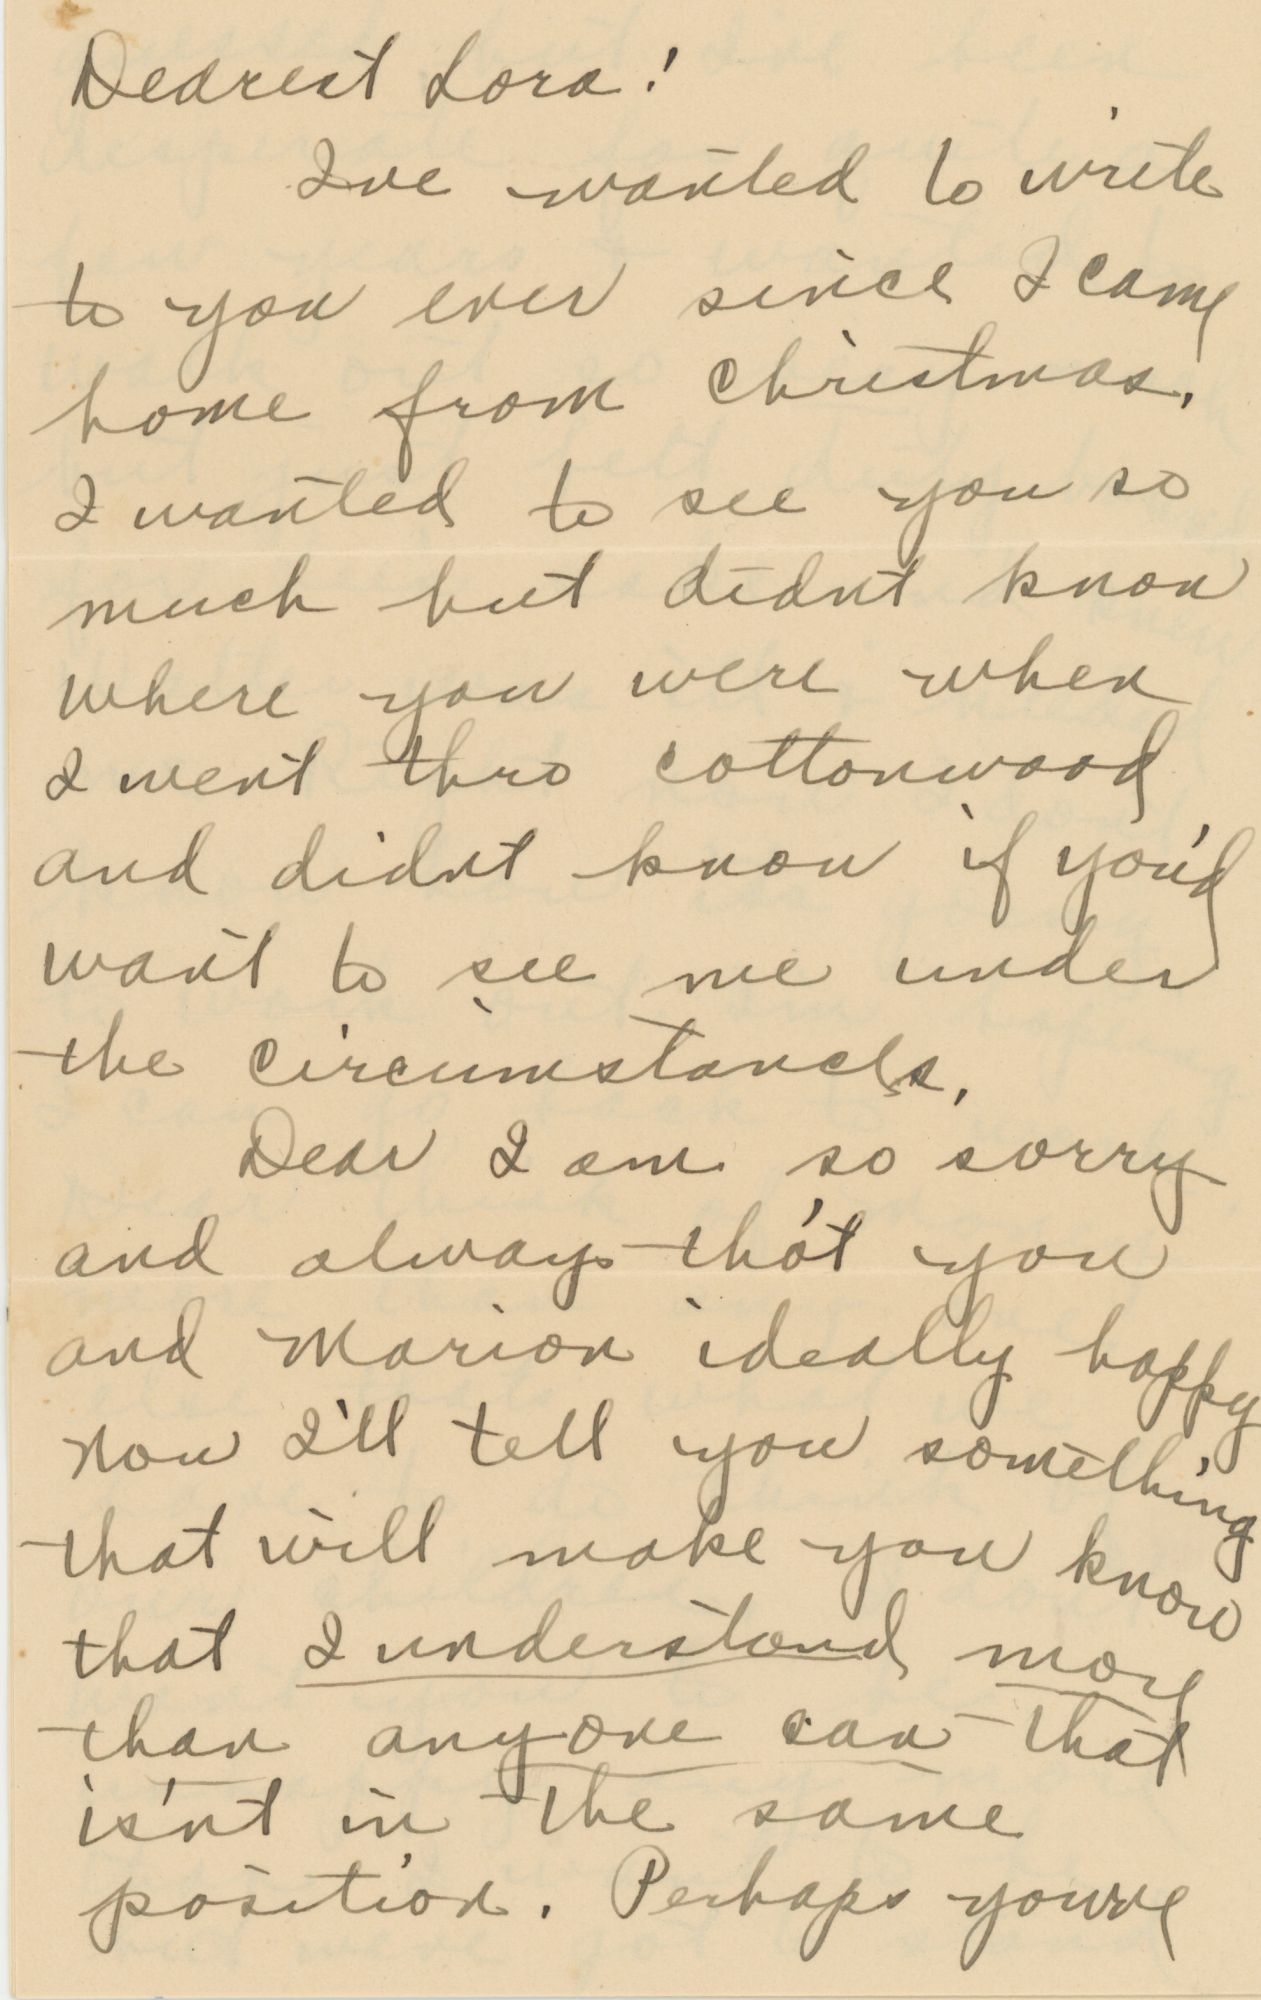 Dearest Lora!
I've wanted to write
to you ever since I came
home from Christmas.
I wanted to see you so
much but didn't know
where you were when
I went thro cottonwood
and didn't know if you'd
want to see me under
the circumstances.
Dear I am so sorry
and always tho't you
and Marion ideally happy
Now I'll tell you something
that will make you know
that I understand more
than anyone can that
is'nt in the same
position. Perhaps you've